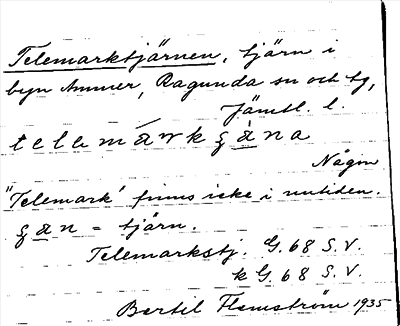 Telemarktjärnen, tjärn i
byn Ammer, Ragunda sn och tg,
Jämtl. l.
telemarkʒäna
Någon
"Telemark" finns icke i nutiden.
ʒän = tjärn.
Telemarkstj. G. 68 S.V.
k G. 68 S.V.
Bertil Flemström 1935